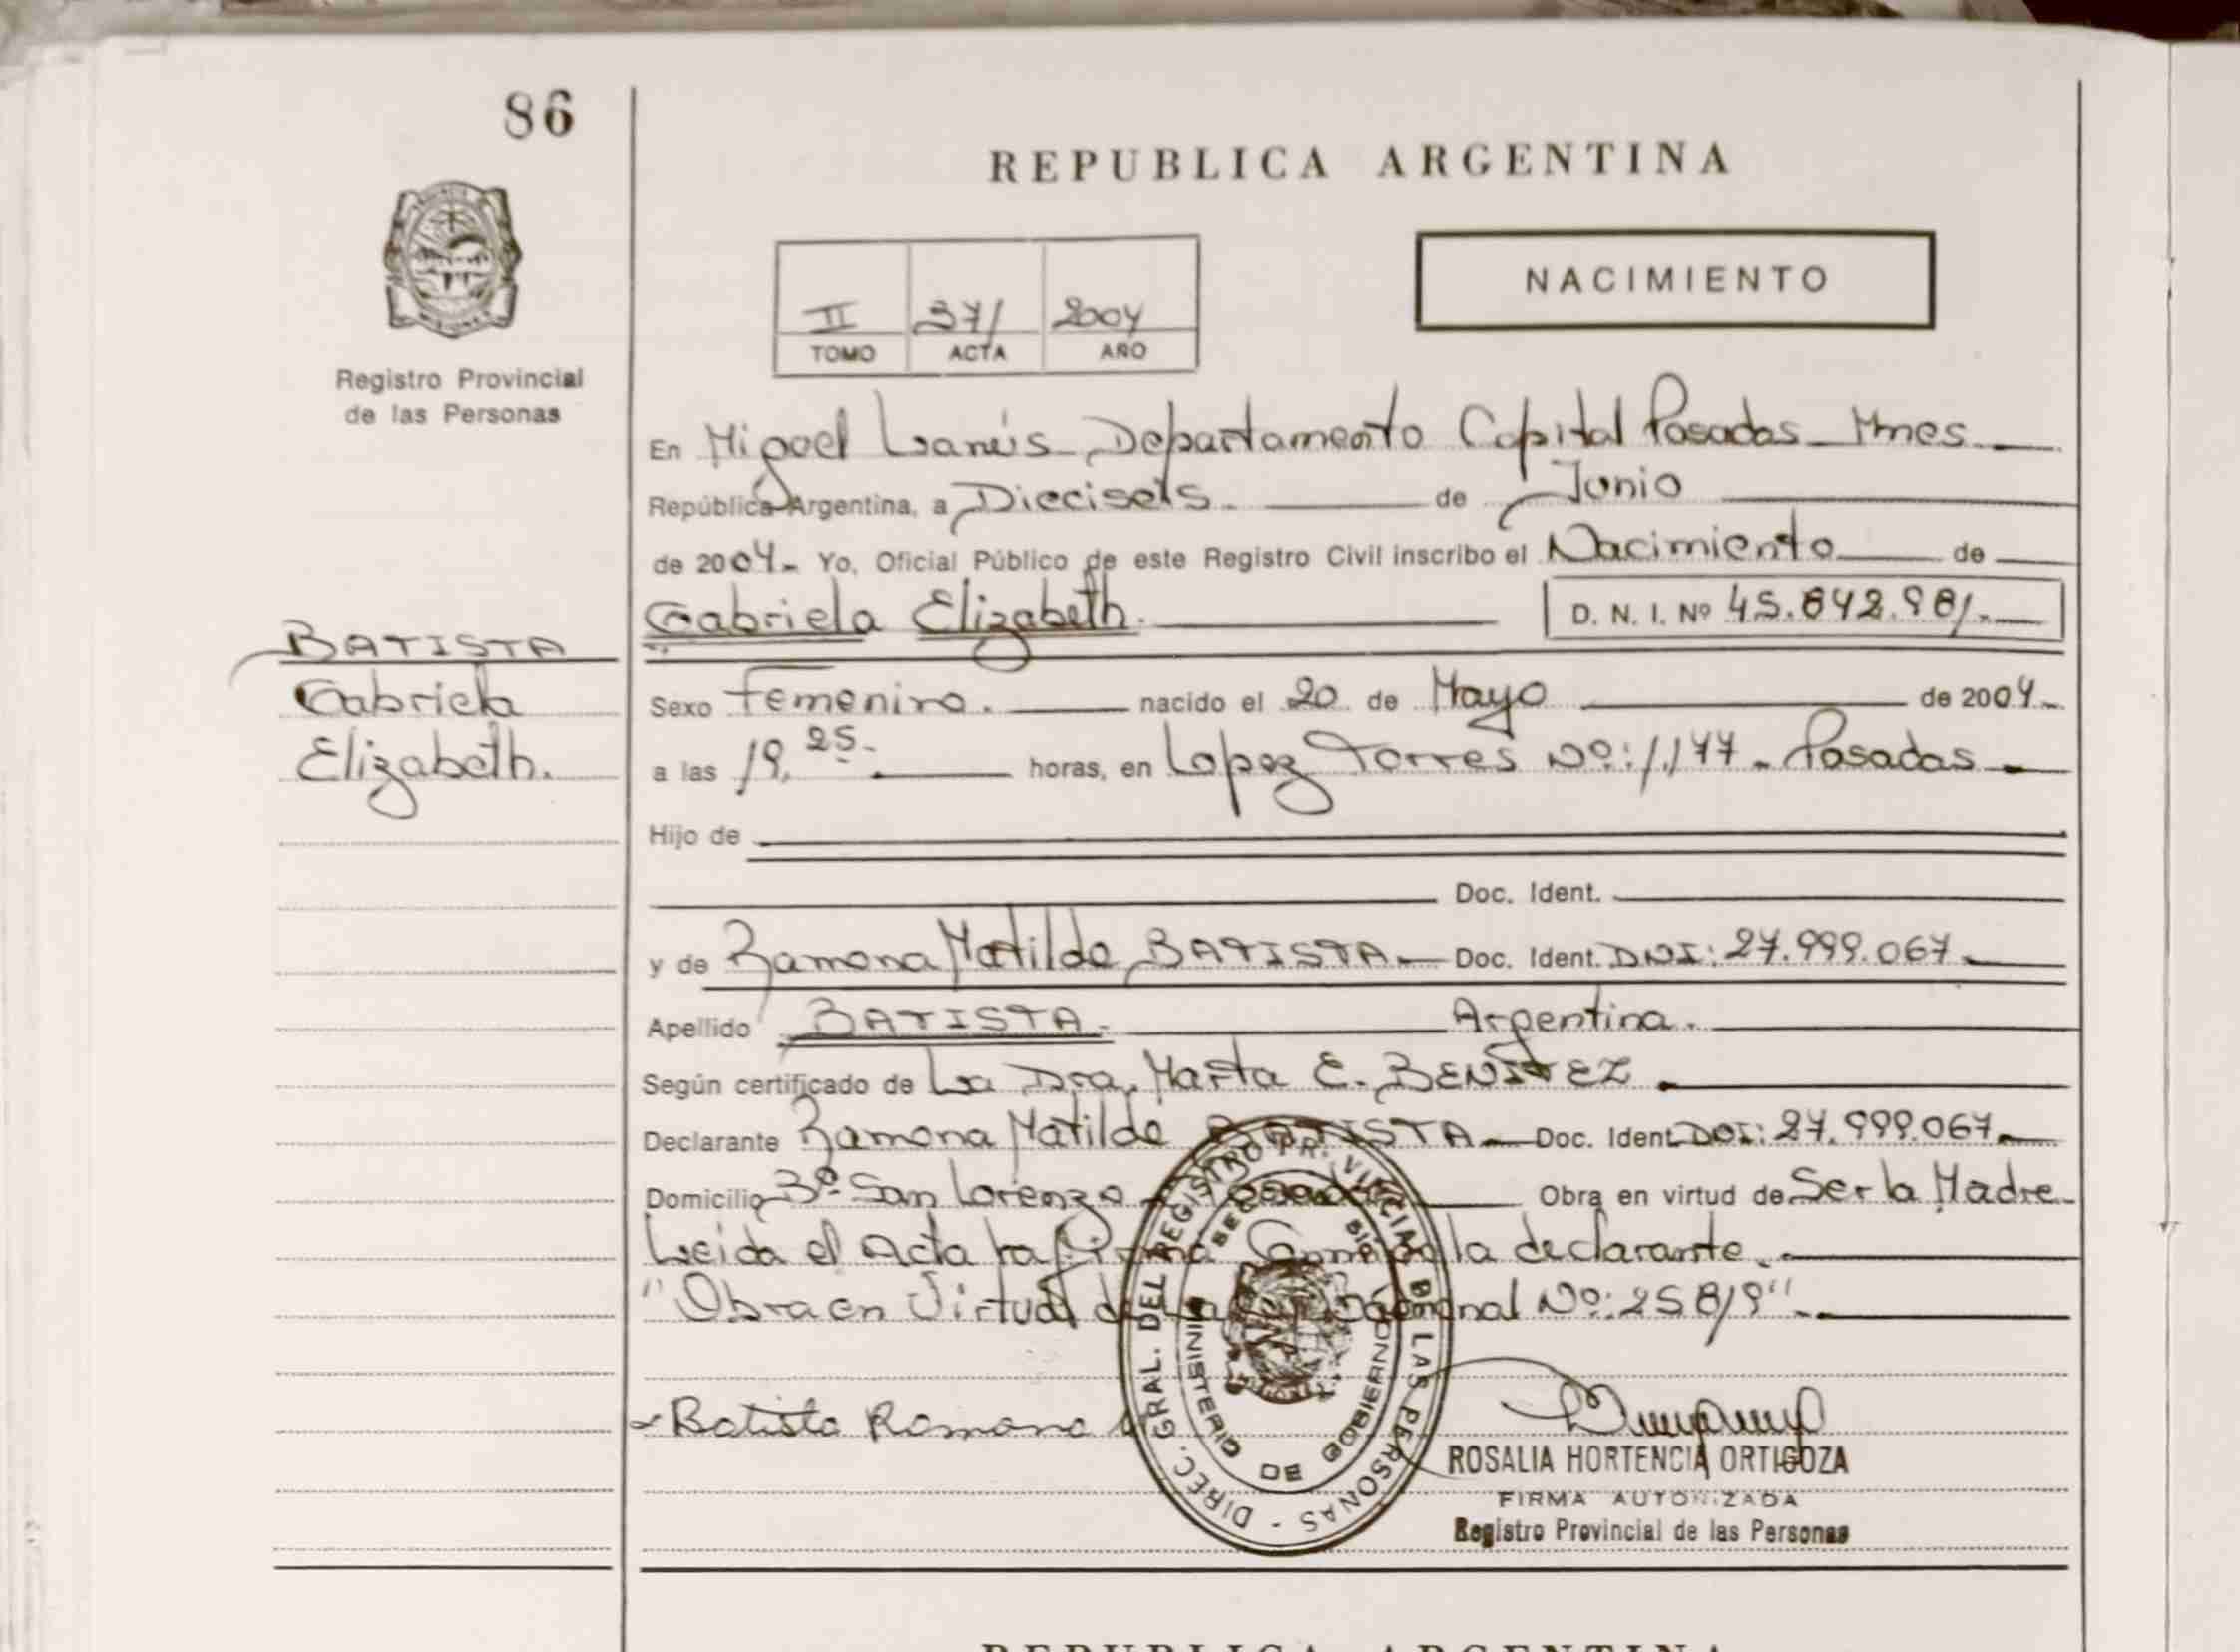 86
REPUBLICA ARGENTINA
NACIMIENTO
II 371 2004
TOMO ACTA AÑO
Registro Provincial
de las Personas
En Miguel Lanús Departamento Capital Posadas Mnes
República Argentina, a Dieciseis de Junio
de 2004 Yo, Oficial Público de este Registro Civil inscribo el Nacimiento de
Gabriela Elizabeth. D. N. I. Nº 45.842.981.
BATISTA
Gabriela
Elizabeth.
Sexo Femenino. nacido el 20 de Mayo de 2004
a las 19,25 horas, en Lopez Torres Nº: 1.177 - Posadas
Hijo de
Doc. Ident.
y de Ramona Matilde BATISTA Doc. Ident. DNI: 27.999.067
Apellido BATISTA Argentina.
Según certificado de La Dra. Marta E. BENITEZ
Declarante Ramona Matilde BATISTA Doc. Ident DNI: 27.999.067
Domicilio Bº San Lorenzo - Posadas Obra en virtud de Ser la Madre
Leida el Acta la la declarante.
"Obra en Virtud de Nº: 25819"
Batista Ramona
DIREC. GRAL. DEL REGISTRO PROVINCIAL DE LAS PERSONAS
MINISTERIO DE GOBIERNO
ROSALIA HORTENCIA ORTIGOZA
FIRMA AUTORIZADA
Registro Provincial de las Personas
REPUBLICA ARGENTINA